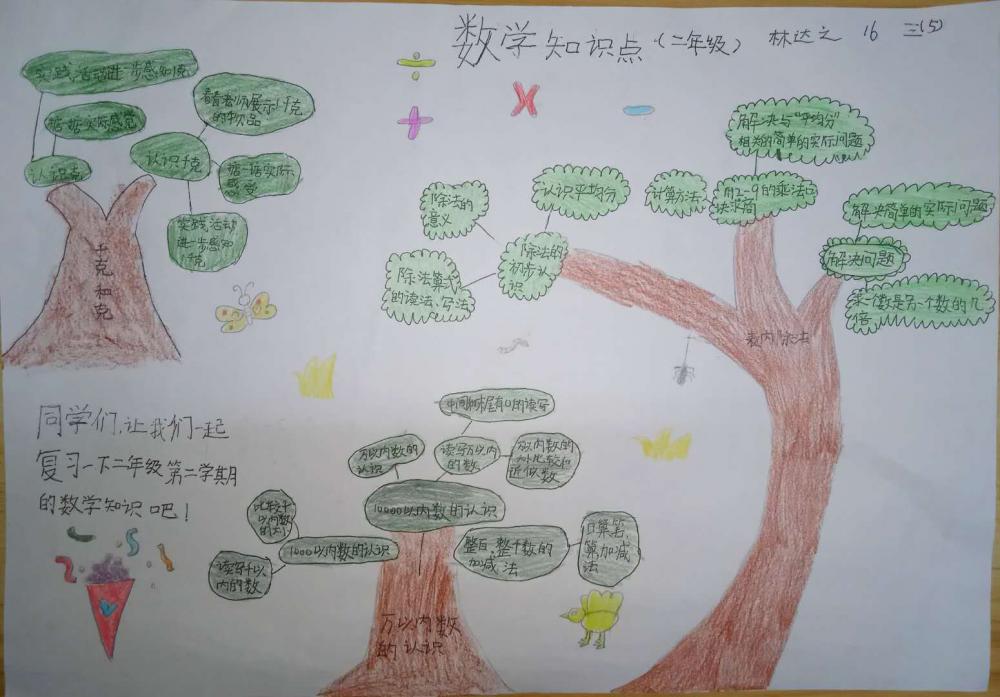 数学知识点（二年级） 林达之 16 三(5)
÷
+
×
-
实践活动进一步感知克
掂一掂实际感觉
认识克
看看老师展示1千克
的物品
认识千克
掂一掂实际
感觉
实践活动
进一步感知
1千克
千克和克
除法的
意义
认识平均分
除法算式
的读法、写法
除法的
初步认
识
计算方法
用2-9的乘法口
诀求商
解决与“平均分”
相关的简单的实际问题
解决简单的实际问题
解决问题
求一个数是另一个数的几
倍
表内除法
同学们,让我们一起
复习一下二年级第二学期
的数学知识吧！
中间和末尾有0的读写
万以内数的
认识
读写万以内
的数
万以内数的
大小比较和
近似数
10000以内数的认识
比较千
以内数
的大小
1000以内数的认识
读写千以
内的数
整百、整千数的
加减法
口算、笔
算加减
法
万以内数
的认识